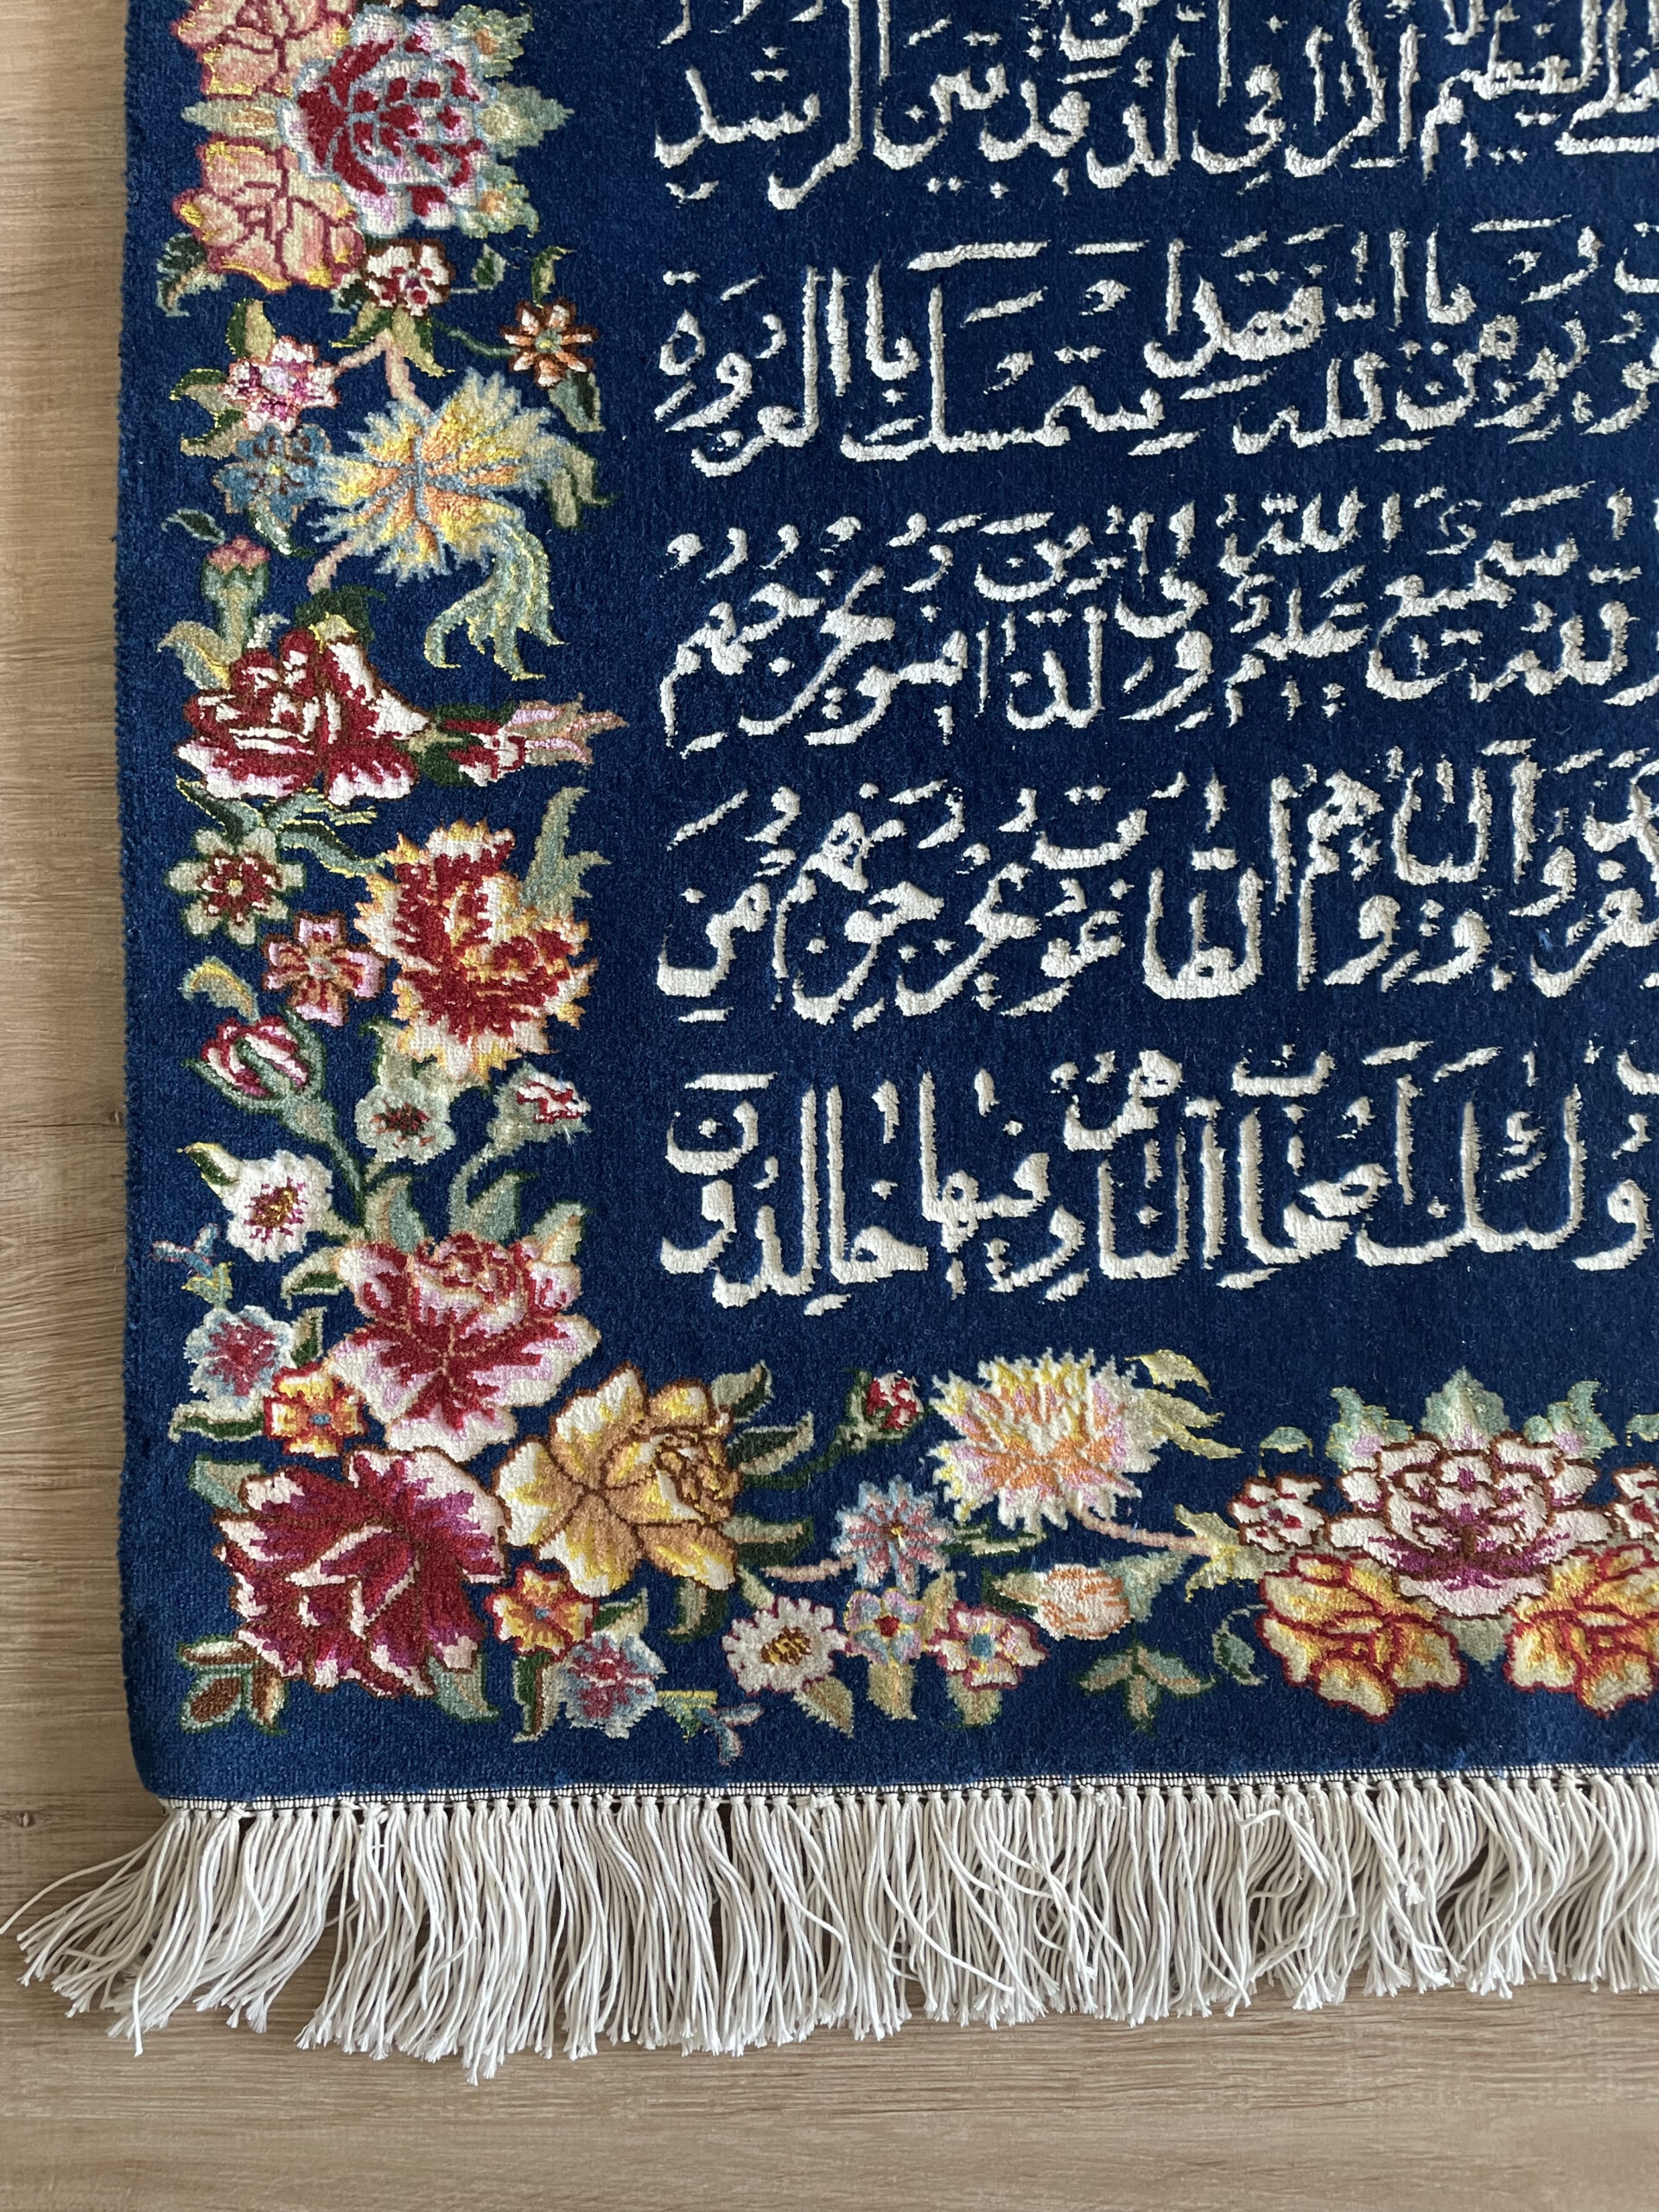 العظيم لا اكراه في الدين قد تبين الرشد
ويؤمن بالله فقد استمسك بالعروة
والله سميع عليم الله ولي الذين امنوا يخرجهم
كفروا اولياؤهم الطاغوت يخرجونهم من
اولئك اصحاب النار هم فيها خالدون